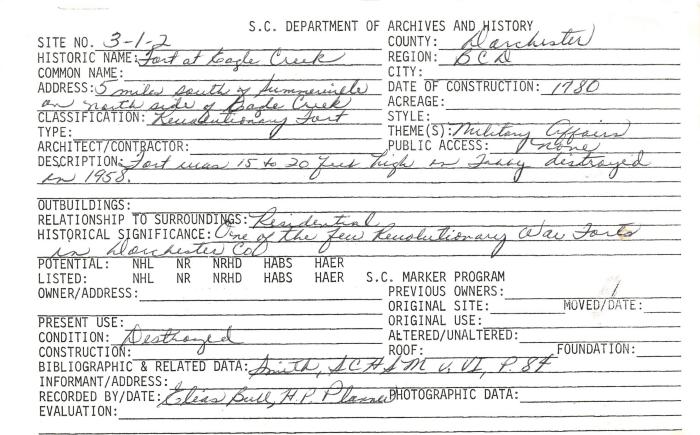 S.C. DEPARTMENT OF ARCHIVES AND HISTORY
SITE NO. 3-1-2 COUNTY: Dorchester
HISTORIC NAME: Fort at Eagle Creek REGION: BCD
COMMON NAME: CITY:
ADDRESS: 5 miles south of Summerville DATE OF CONSTRUCTION: 1780
on north side of Eagle Creek ACREAGE:
CLASSIFICATION: Revolutionary Fort STYLE:
TYPE: THEME(S): Military Affairs
ARCHITECT/CONTRACTOR: PUBLIC ACCESS: None
DESCRIPTION: Fort was 15 to 20 feet high distroyed
in 1958.
OUTBUILDINGS:
RELATIONSHIP TO SURROUNDINGS: Residential
HISTORICAL SIGNIFICANCE: One of the few Revolutionary War Forts
in Dorchester Co
POTENTIAL: NHL NR NRHD HABS HAER
LISTED: NHL NR NRHD HABS HAER S.C. MARKER PROGRAM
OWNER/ADDRESS: PREVIOUS OWNERS: 1
ORIGINAL SITE: MOVED/DATE:
PRESENT USE: ORIGINAL USE:
CONDITION: Destroyed ALTERED/UNALTERED:
CONSTRUCTION: ROOF: FOUNDATION:
BIBLIOGRAPHIC & RELATED DATA: Smith, SCHSM V. VI, P. 84
INFORMANT/ADDRESS:
RECORDED BY/DATE: Elias Bull, H.P. Planner PHOTOGRAPHIC DATA:
EVALUATION: